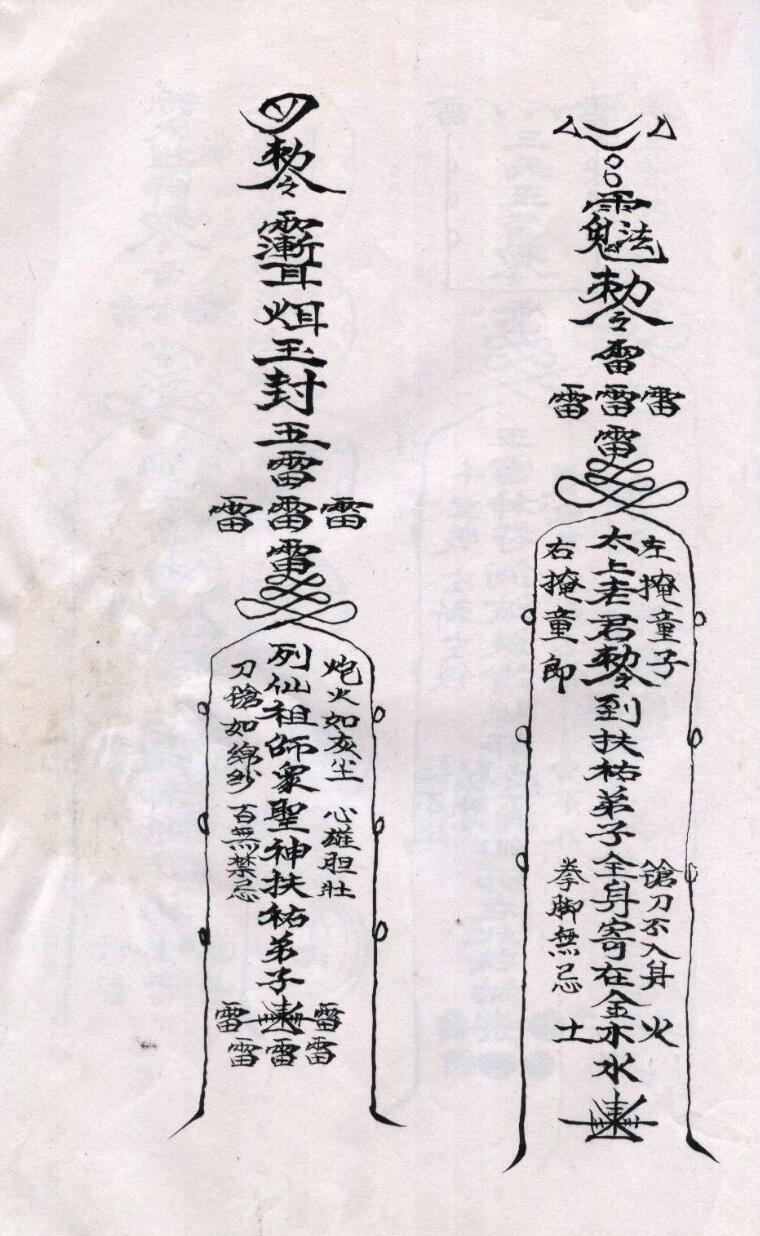 勅令
雷
雷雷雷
雷
左掩童子
太上老君勅令到扶祐弟子全身寄在金木水火土
右掩童郎
鎗刀不入身
拳脚無忌
勅令
玉封
五
雷
雷雷雷
雷
炮火如灰尘 心雄胆壮
列仙祖師衆聖神扶祐弟子
刀鎗如綿紗 百無禁忌
雷雷
雷雷雷